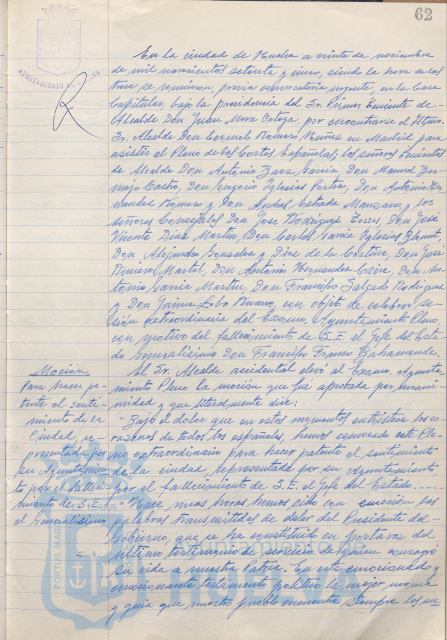 62
AYUNTAMIENTO DE HUELVA
En la ciudad de Huelva a veinte de noviembre
de mil novecientos setenta y cinco, siendo la hora de las
trece se reunieron, previa convocatoria urgente, en la Casa
Capitular, bajo la presidencia del Sr. Primer Teniente de
Alcalde Don Juan Mora Ortega, por encontrarse el Iltmo.
Sr. Alcalde Don Romero en Madrid para
asistir al Pleno de las Cortes Españolas, los señores Tenientes
de Alcalde Don Antonio Baez García, Don Manuel Ber-
mejo Castro, Don Gregorio Iglesias Don Antonio Her-
nandez Romero y Don Andres Estrada Manzano, y los
señores Concejales Don Jose Rodriguez Torres, Don Jose
Vicente Diaz Martin, Don Carlos García Iglesias
Don Alejandro Gonzalez y Diez de la Cortina, Don Jose
Romero Martel, Don Antonio Hernandez Don An-
tonio García Martin, Don Francisco Salgado Rodriguez
y Don Jaime Lobo con objeto de celebrar se-
sión extraordinaria del Excmo. Ayuntamiento Pleno,
con motivo del fallecimiento de S.E. el Jefe del Esta-
do Generalísimo Don Francisco Franco Bahamonde.
Moción
Para hacer pa-
tente el senti-
miento de la
Ciudad, re-
presentada por
su Ayuntamien-
to por el falleci-
miento de S.E.
el Generalísimo
El Sr. Alcalde accidental elevó al Excmo. Ayunta-
miento Pleno la moción que fué aprobada por unani-
midad y que literalmente dice:
"Bajo el dolor que en estos momentos entristece los co-
razones de todos los españoles, hemos convocado este Ple-
no extraordinario para hacer patente el sentimiento
de la ciudad representada por su Ayuntamiento
por el fallecimiento de S.E. el Jefe del Estado.
Hace unas horas hemos oido con emoción las
palabras transmitidas de dolor del Presidente del
Gobierno, que se ha constituido en portavoz del
ultimo testimonio de servicio de quien consagró
su vida a nuestra Patria. En este emocionado y
emocionante testamento político la mejor norma
y guia que nuestro pueblo encuentra siempre los me
PORTUS MARIS
HUELVA